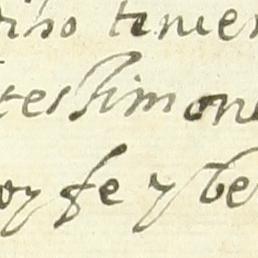 dho tenien
testimoni
oy fe y ve